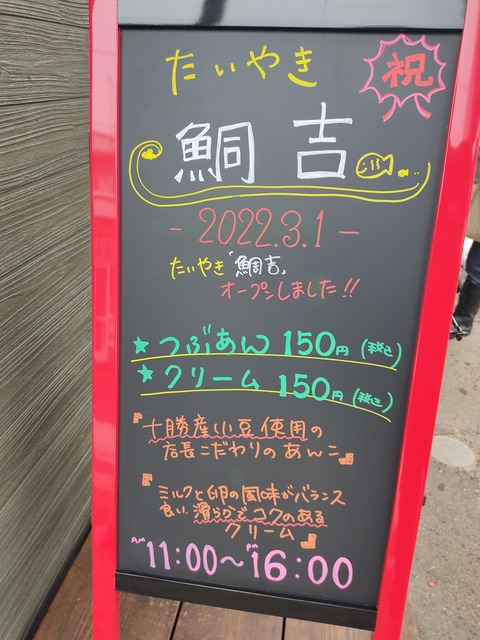 たいやき
祝
鮦吉
- 2022.3.1 -
たいやき「鯛吉」
オープンしました!!
★つぶあん 150円 (税込)
★クリーム 150円 (税込)
『十勝産小豆使用の
店長こだわりのあんこ』
『ミルクと卵の風味がバランス
良い、滑らかでコクのある
クリーム』
AM 11:00~PM 16:00